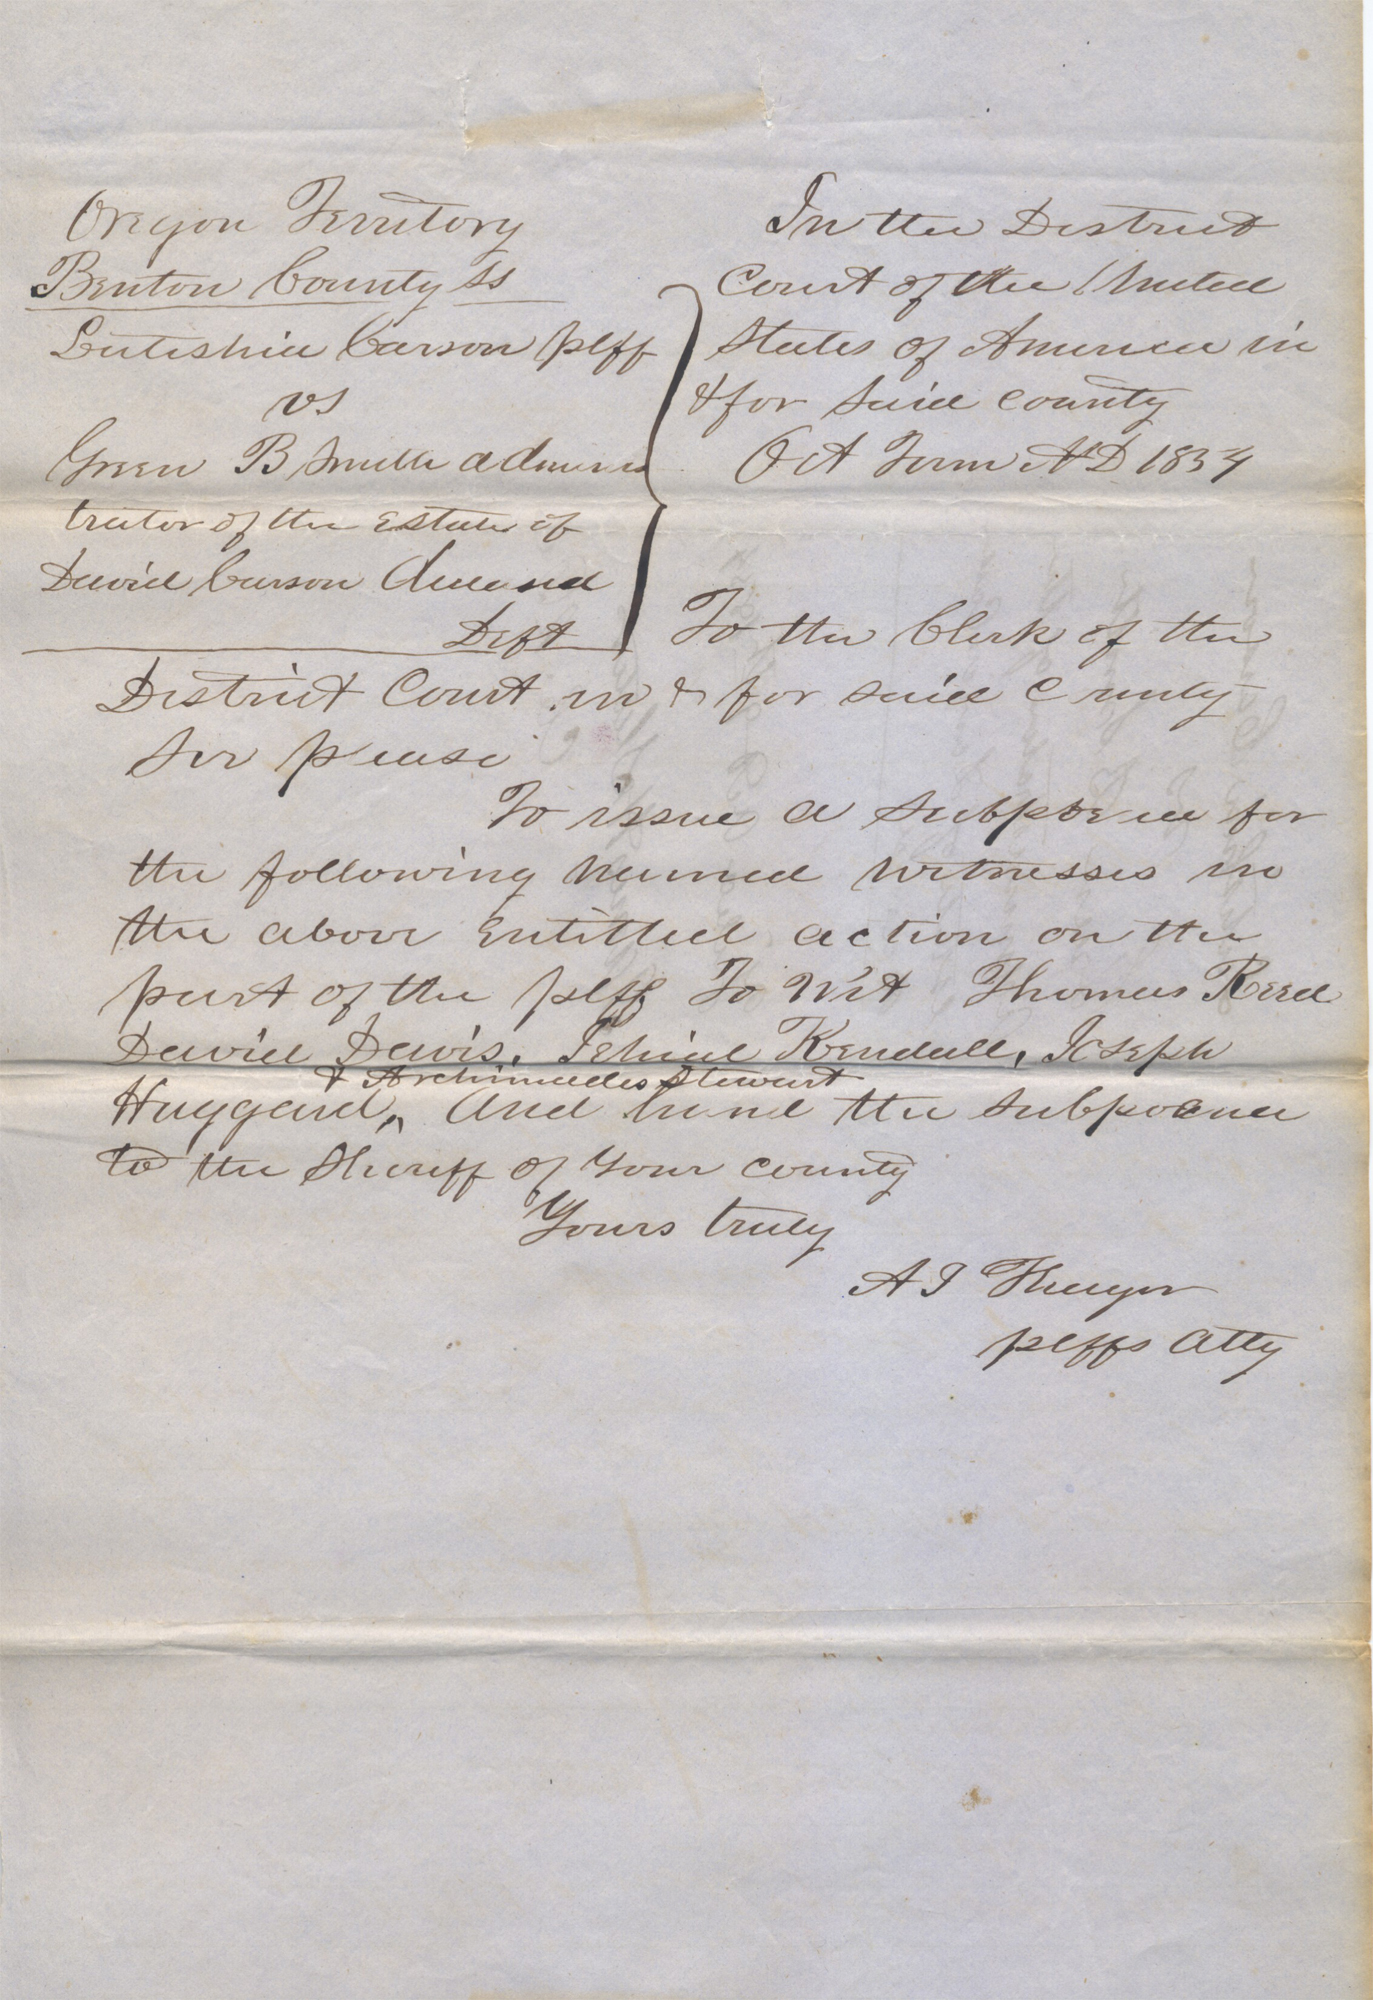 Oregon Territory
Benton County ss
Luteshia Carson plff
vs
Green B Smith adminis
trator of the Estate of
David Carson deceased
Deft
In the District
Court of the United
States of America in
& for said county
Oct Term AD 1854
To the Clerk of the
District Court in & for said County
Sir please
To issue a subpoena for
the following named witnesses in
the above entitled action on the
part of the plff To Wit Thomas Reed
David Davis, Jehial Kendall, Joseph
& Archimedes Stewart
Huggard, And hand the subpoena
to the Sheriff of your county
Yours truly
A J Thayer
plffs atty